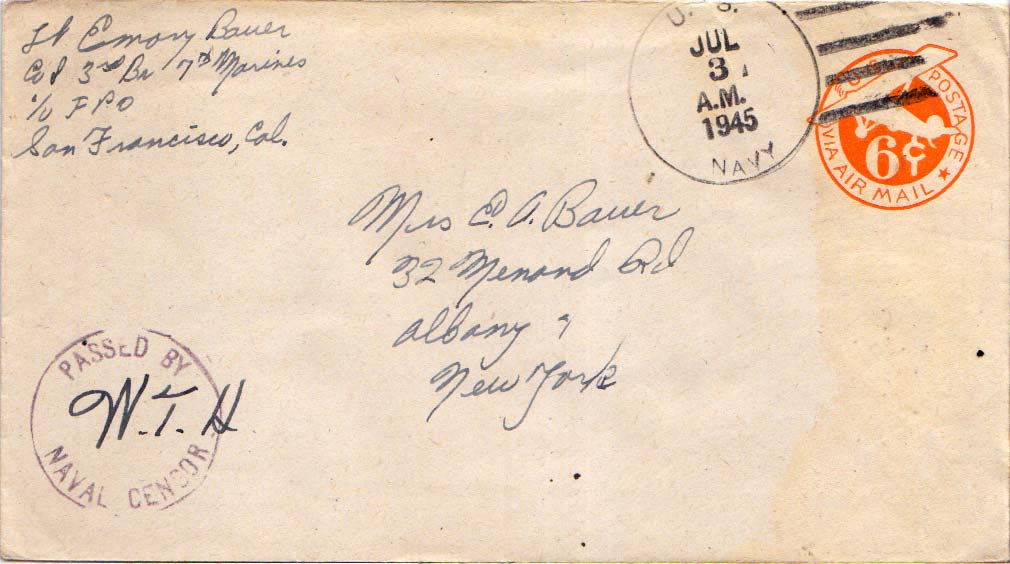 Lt Emory Bauer
Co I 3rd Bn 7th Marines
℅ F P O
San Francisco, Cal.
U. S.
JUL
3
A.M.
1945
NAVY
U.S. POSTAGE
6¢
VIA AIR MAIL
Mrs E. A. Bauer
32 Menand Rd
Albany
New York
PASSED BY
W. T. H
NAVAL CENSOR